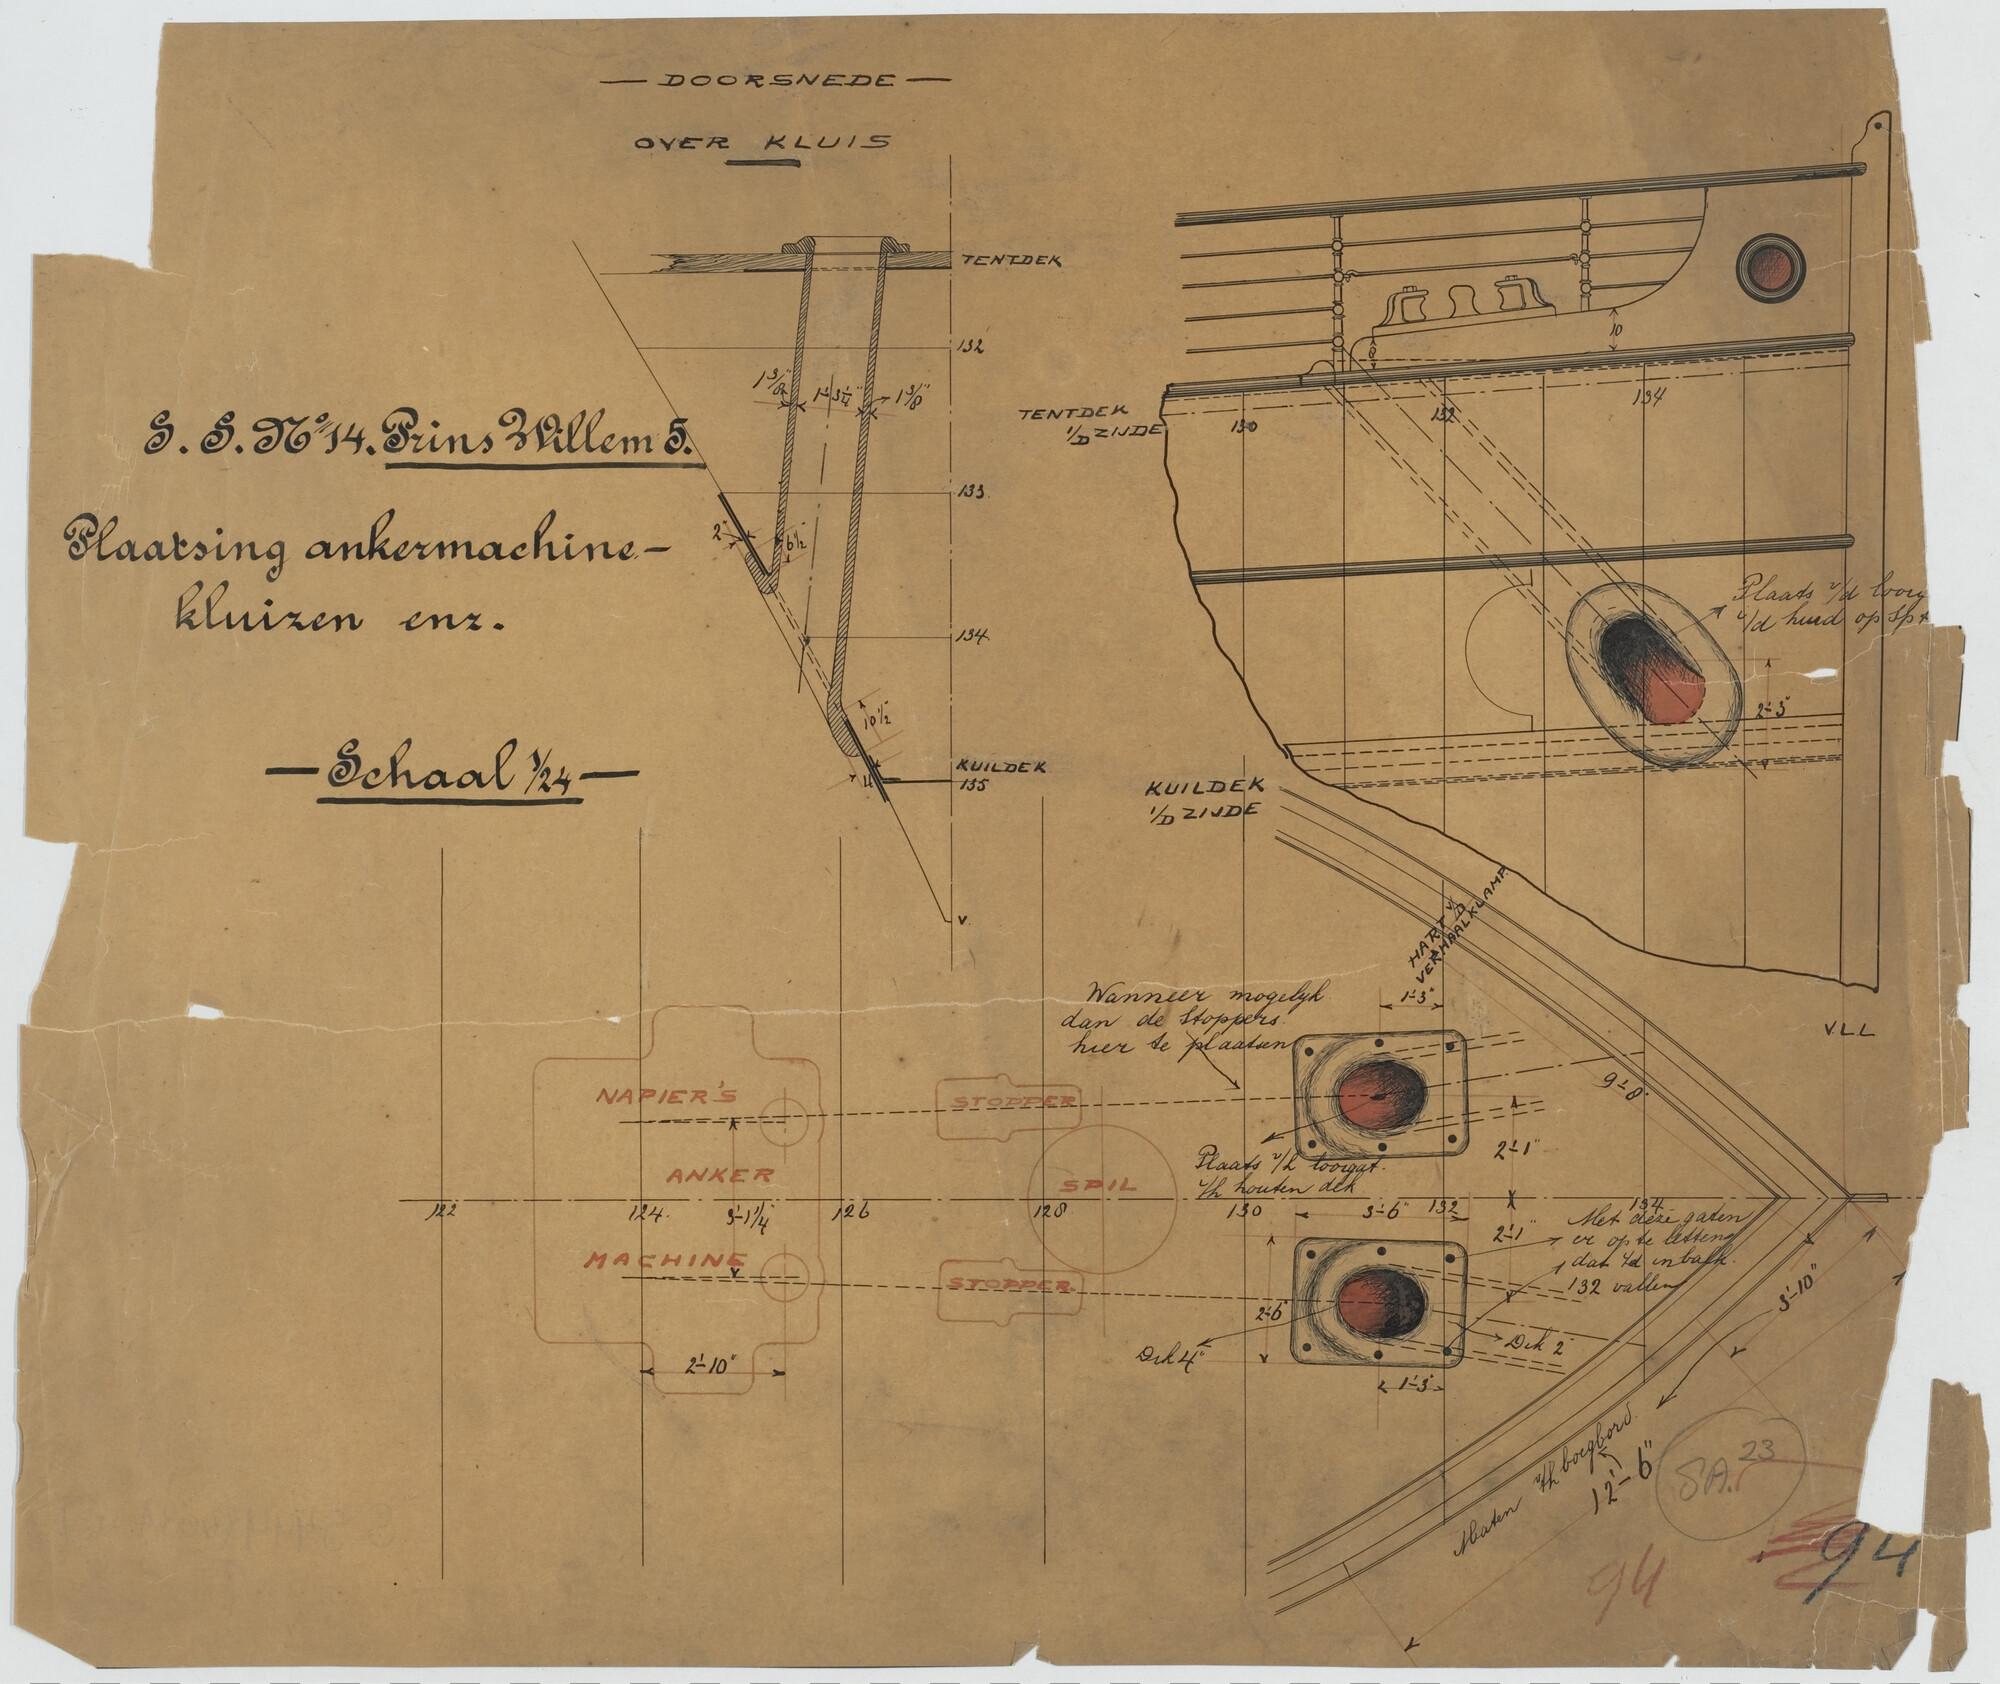 — DOORSNEDE —
OVER KLUIS
S. S. Nº 14. Prins Willem 5.
Plaatsing ankermachine-
kluizen enz.
— Schaal 1/24 —
TENTDEK
132
1 3/8"
1'-3 1/4"
1 3/8"
133
2"
6 1/2"
134
10 1/2"
4
KUILDEK
135
V.
10
8
TENTDEK
I/D ZIJDE
130
132
134
Plaats v/d
v/d huid op Sp
2'-3"
KUILDEK
I/D ZIJDE
V.L.L
HART V/D
VERHAALKLAMP.
1'-3"
Wanneer mogelyk
dan de Stoppers
hier te plaatsen
9'-8"
NAPIER'S
STOPPER
2'-1"
Plaats v/h
v/h houten dek
ANKER
SPIL
122
124.
3'-1 1/4"
126
128
130
3'-6"
132
134
2'-1"
Met deze gaten
er op te letten
dat in balk
132 vallen
MACHINE
STOPPER.
2'-6"
3'-10"
Dik 4"
Dik 2"
2'-10"
1'-3"
Maten v/h boegbord.
12'-6"
SA. 23
94
94